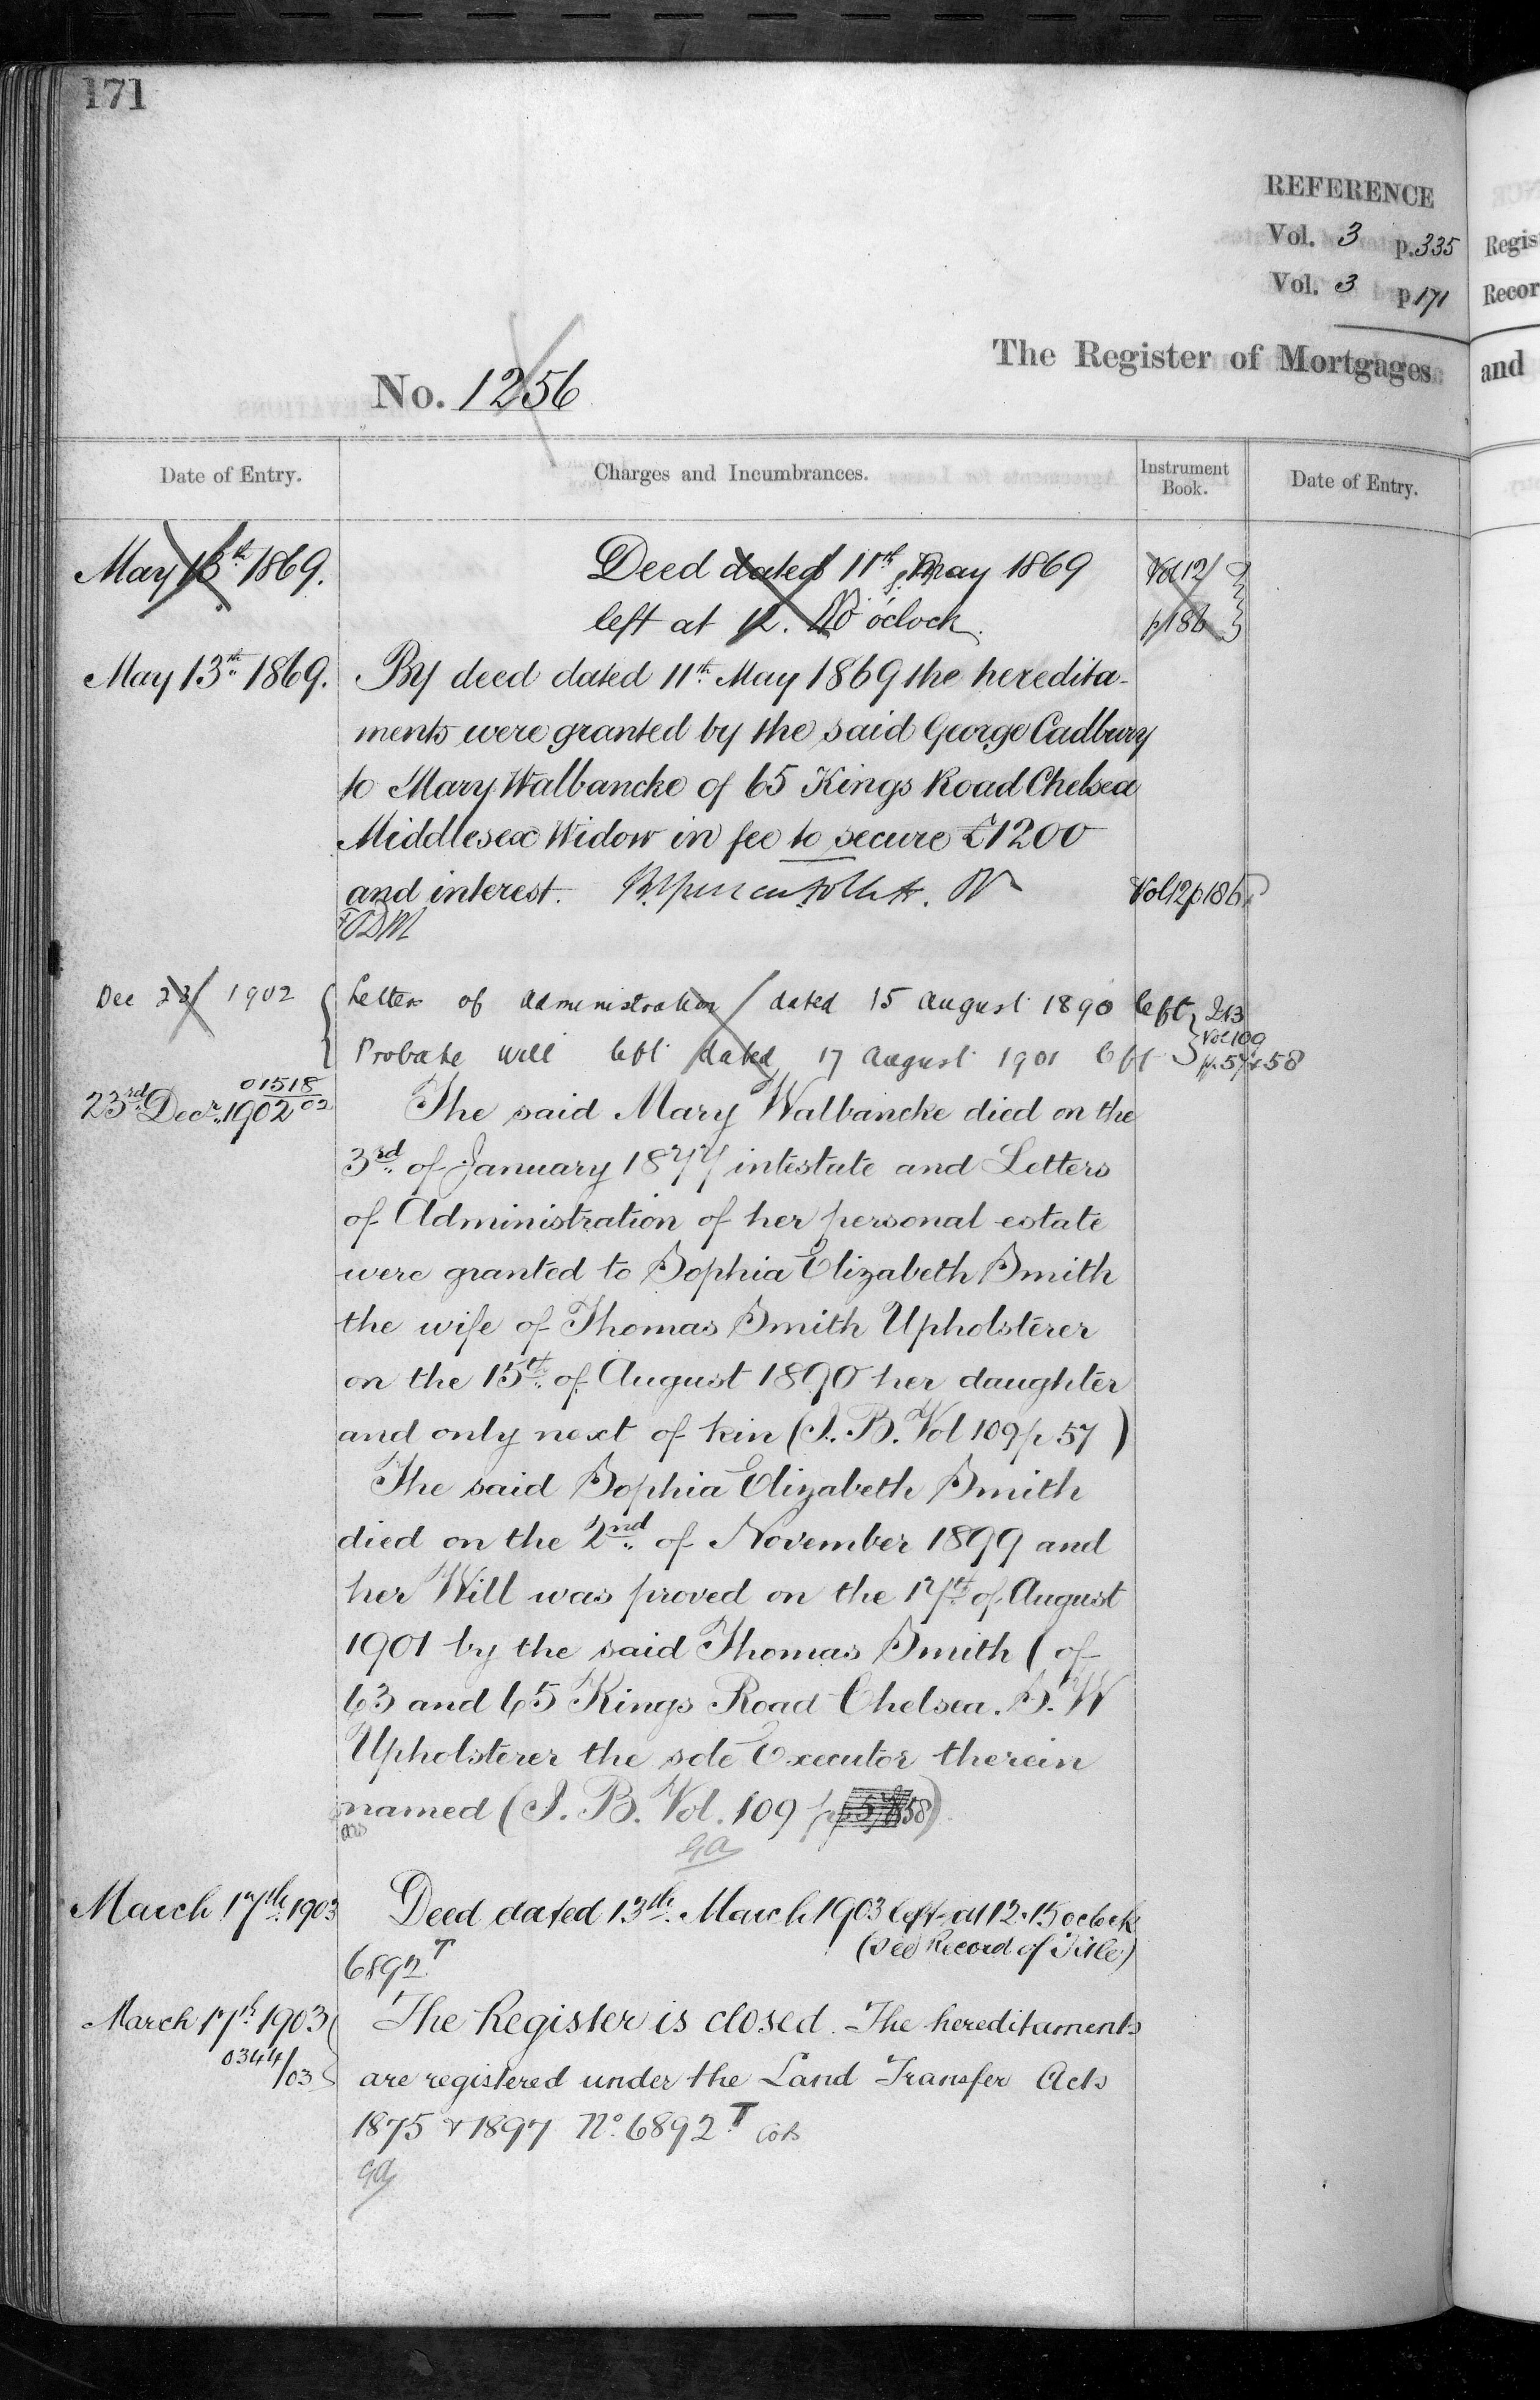 171
REFERENCE
Vol. 3 p. 335
Vol. 3 p. 171
The Register of Mortgages
No. 1256
Date of Entry.
Charges and Incumbrances.
Instrument Book.
Date of Entry.
May 13th 1869.
Deed dated 11th May 1869
Vol 12
left at 12. o'clock.
p 186
May 13th 1869.
By deed dated 11th May 1869 the heredita-
ments were granted by the said George Cadbury
to Mary Walbancke of 65 Kings Road Chelsea
Middlesex Widow in fee to secure £1200
and interest.
Vol 12 p 186
Dec 23 1902
Letters of administration dated 15 august 1890 left
Probate will left dated 17 august 1901 left
Vol 109
p. 57 & 58
01518
02
23rd Decr. 1902
The said Mary Walbancke died on the
3rd of January 1877 intestate and Letters
of Administration of her personal estate
were granted to Sophia Elizabeth Smith
the wife of Thomas Smith Upholsterer
on the 15th of August 1890 her daughter
and only next of kin (I. B. Vol 109 p 57)
The said Sophia Elizabeth Smith
died on the 2nd of November 1899 and
her Will was proved on the 17th of August
1901 by the said Thomas Smith (of
63 and 65 Kings Road Chelsea. S. W
Upholsterer the sole Executor therein
named (I. B. Vol. 109 p 58)
March 17th 1903
Deed dated 13th March 1903 left at 12.15 oclock
(see Record of Title)
6892T
March 17th 1903
0344/03
The Register is closed. The hereditaments
are registered under the Land Transfer Acts
1875 & 1897 No. 6892T
Regis
Recor
and